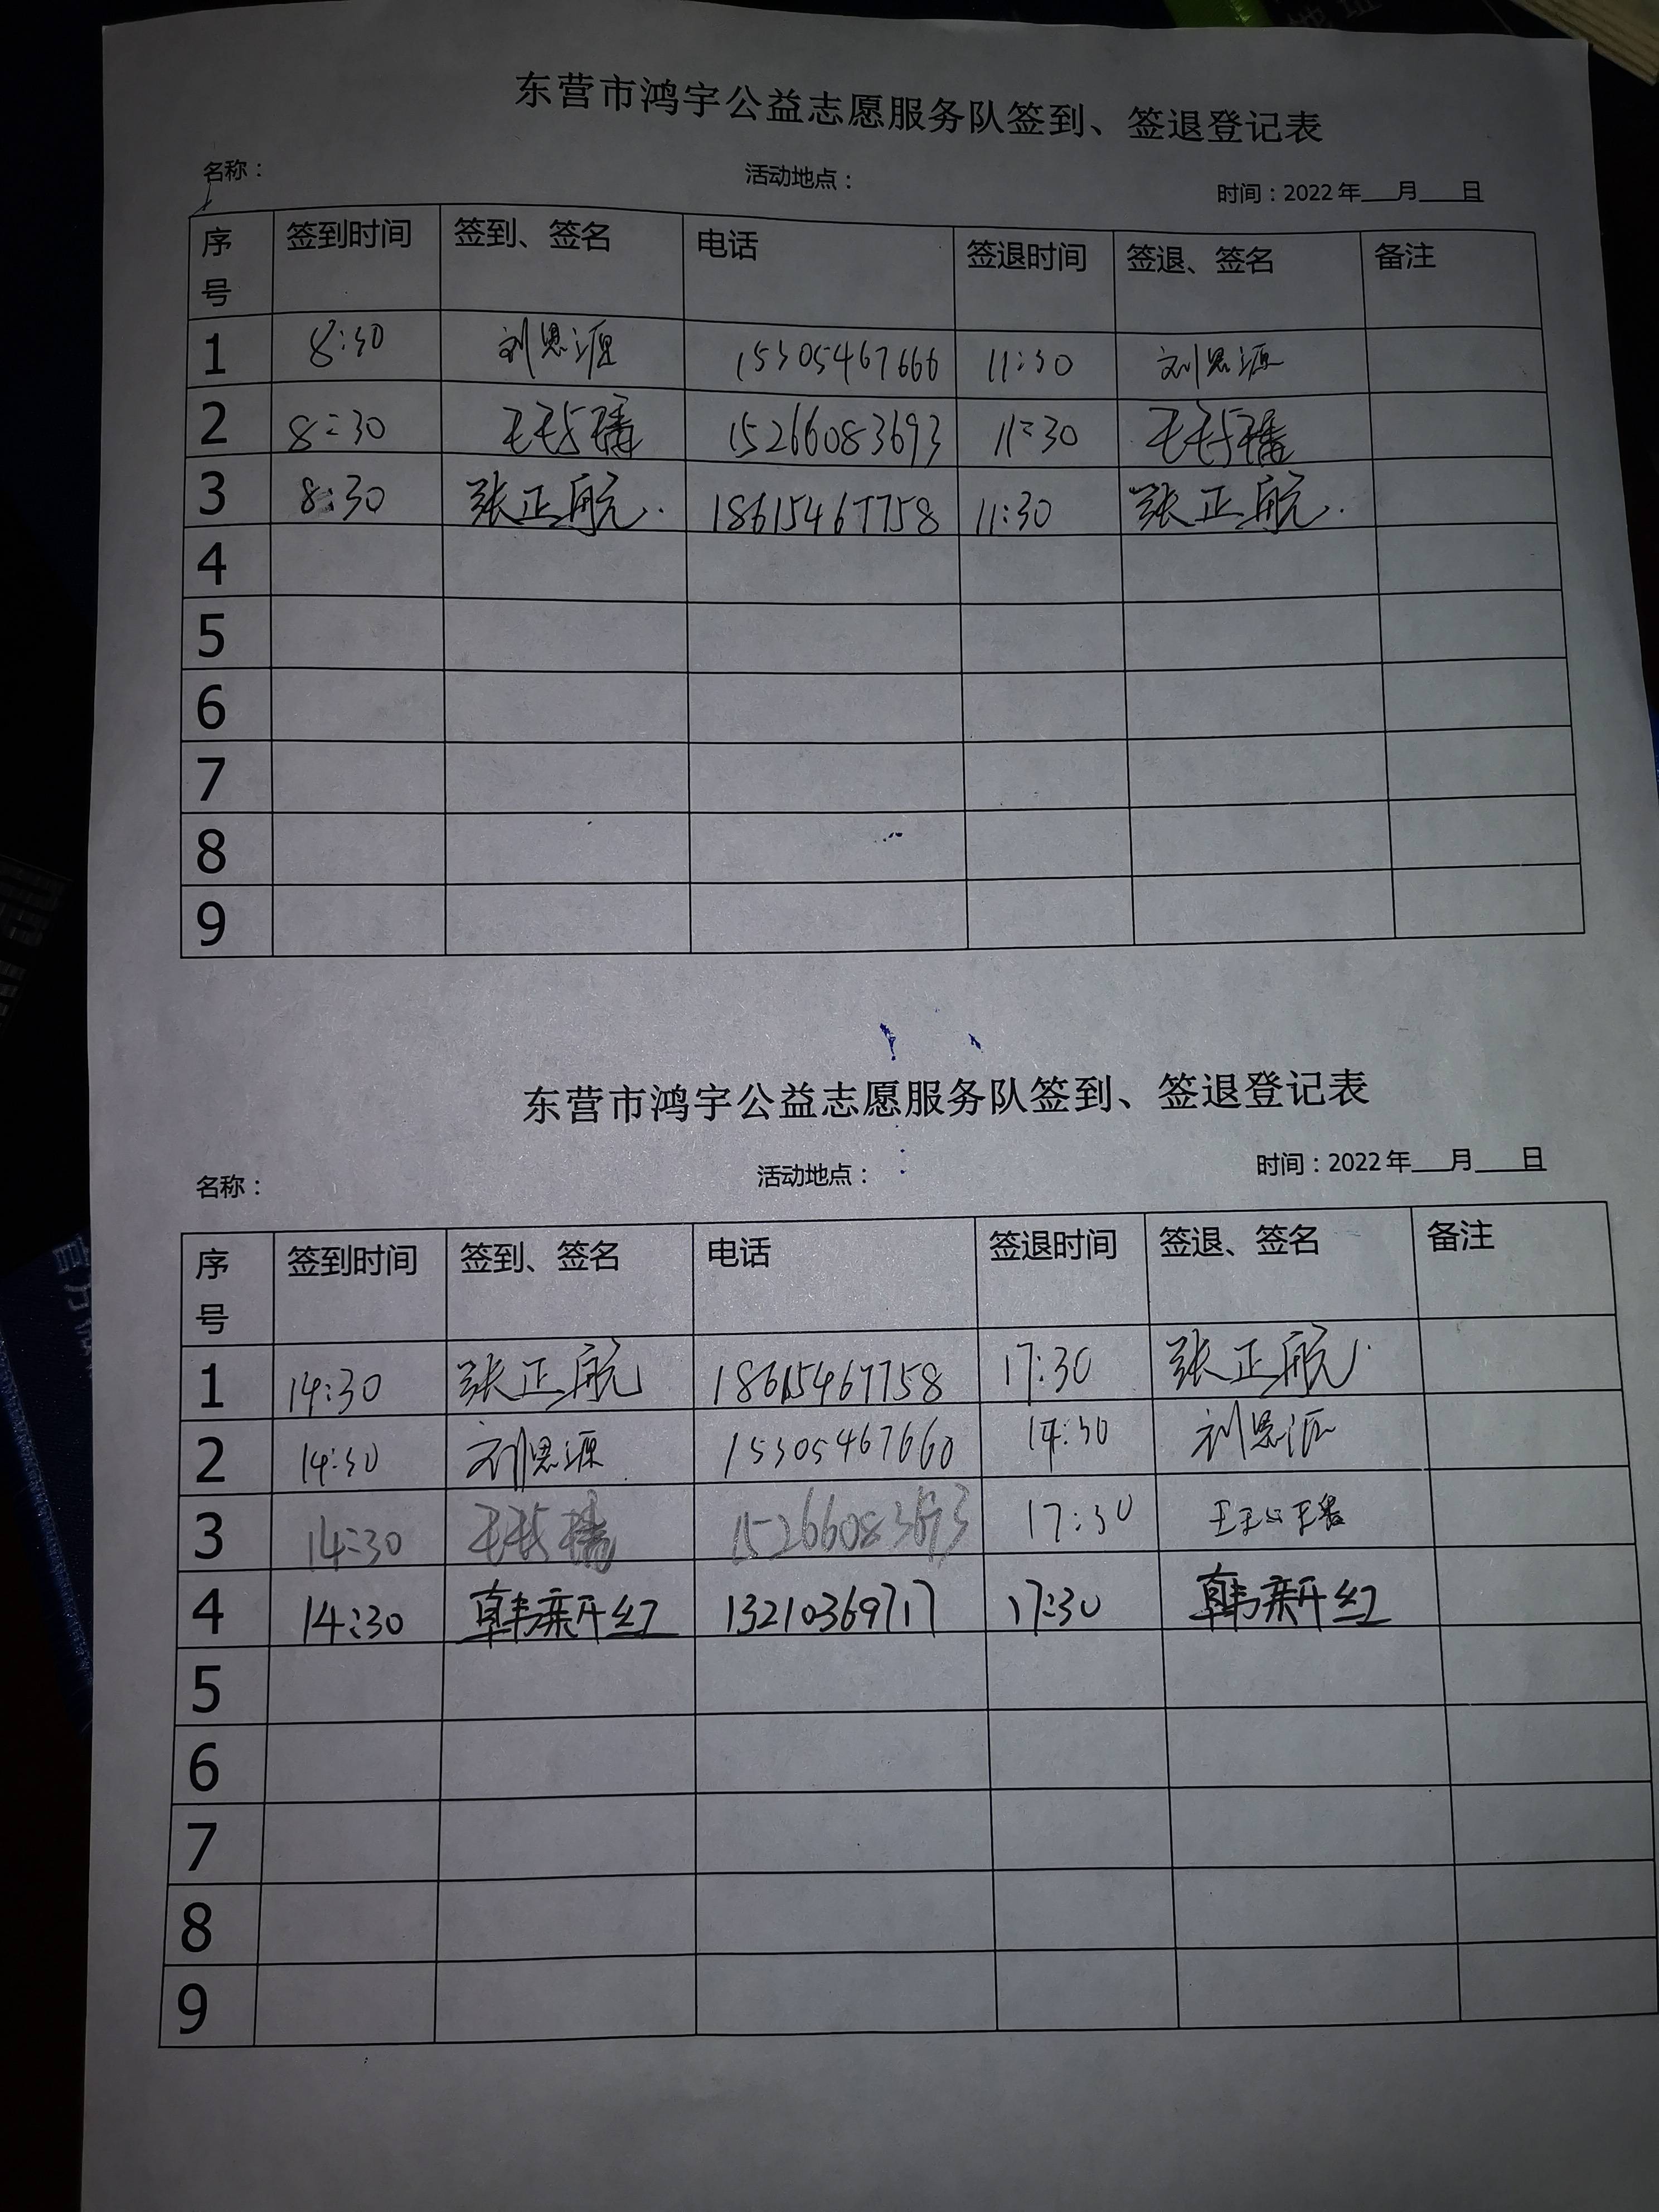 东营市鸿宇公益志愿服务队签到、签退登记表
名称：
活动地点：
时间：2022年___月___日
序号 签到时间 签到、签名 电话 签退时间 签退、签名 备注
1 8:30 刘恩源 15305467666 11:30 刘恩源
2 8:30 15266083693 11:30
3 8:30 张正航 18615467758 11:30 张正航
4
5
6
7
8
9
东营市鸿宇公益志愿服务队签到、签退登记表
名称：
活动地点：
时间：2022年___月___日
序号 签到时间 签到、签名 电话 签退时间 签退、签名 备注
1 14:30 张正航 18615467758 17:30 张正航
2 14:30 刘恩源 15305467660 刘恩源
3 14:30 15266083693 17:30
4 14:30 韩新红 13210369717 17:30 韩新红
5
6
7
8
9